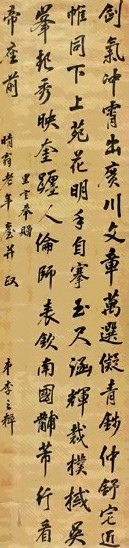 劍氣冲霄出廣川文章萬選儗青錢仲舒宅近
帷同下上苑花明手自搴玉尺涵輝裁樸棫吳
峯挹秀映奎躔人倫師表欽南國黼芾行看
帝座前
里言奉贈
晴老年臺并政
弟李之粹